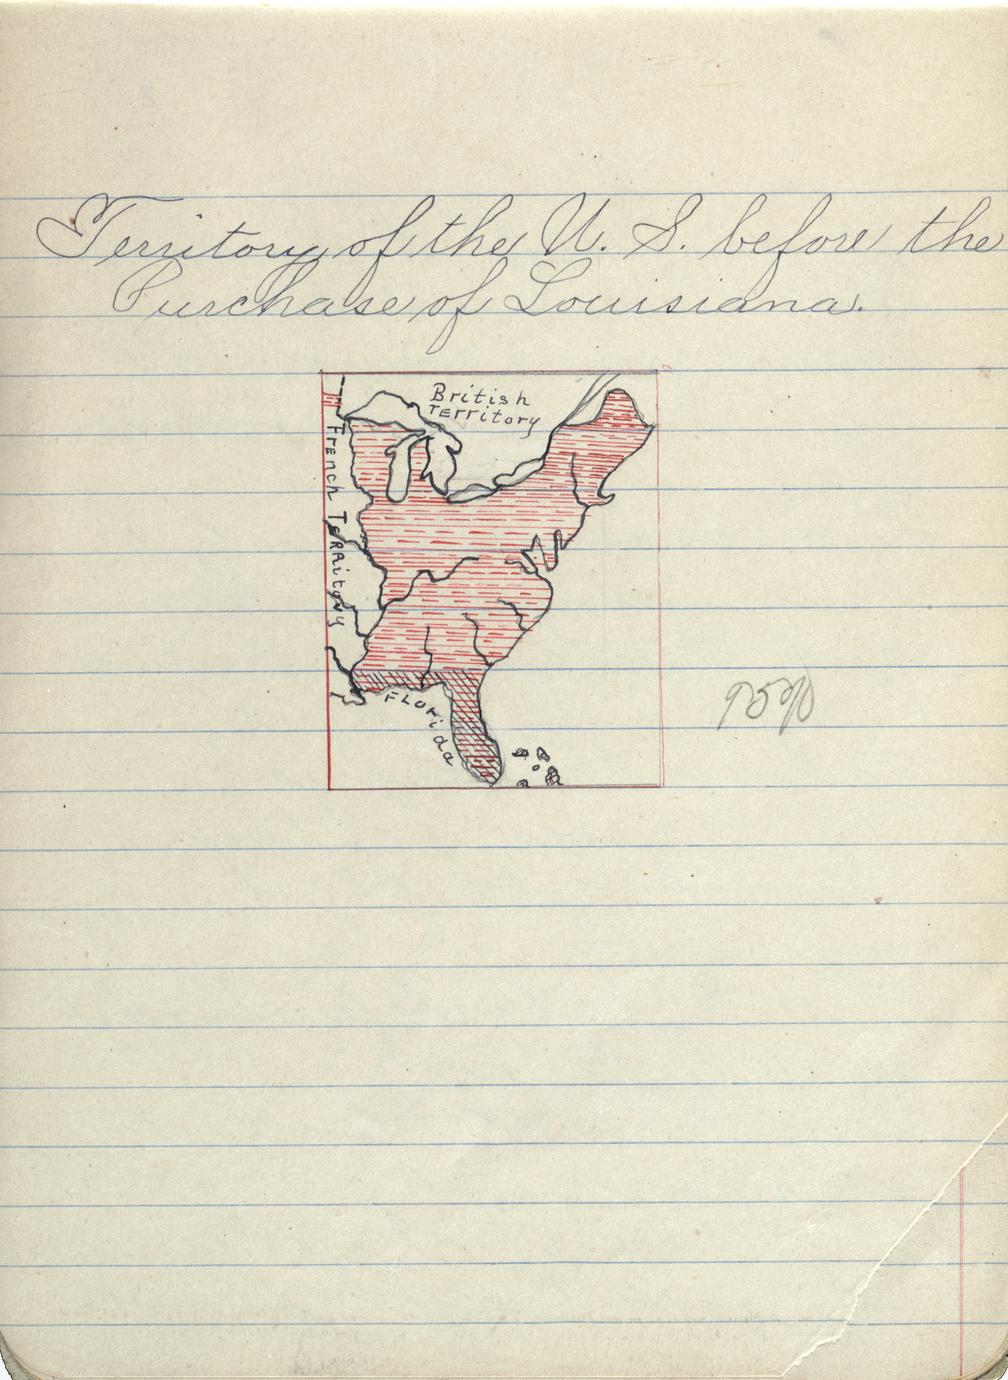 Territory of the U. S. before the
Purchase of Louisiana.
British
Territory
French Territory
Florida